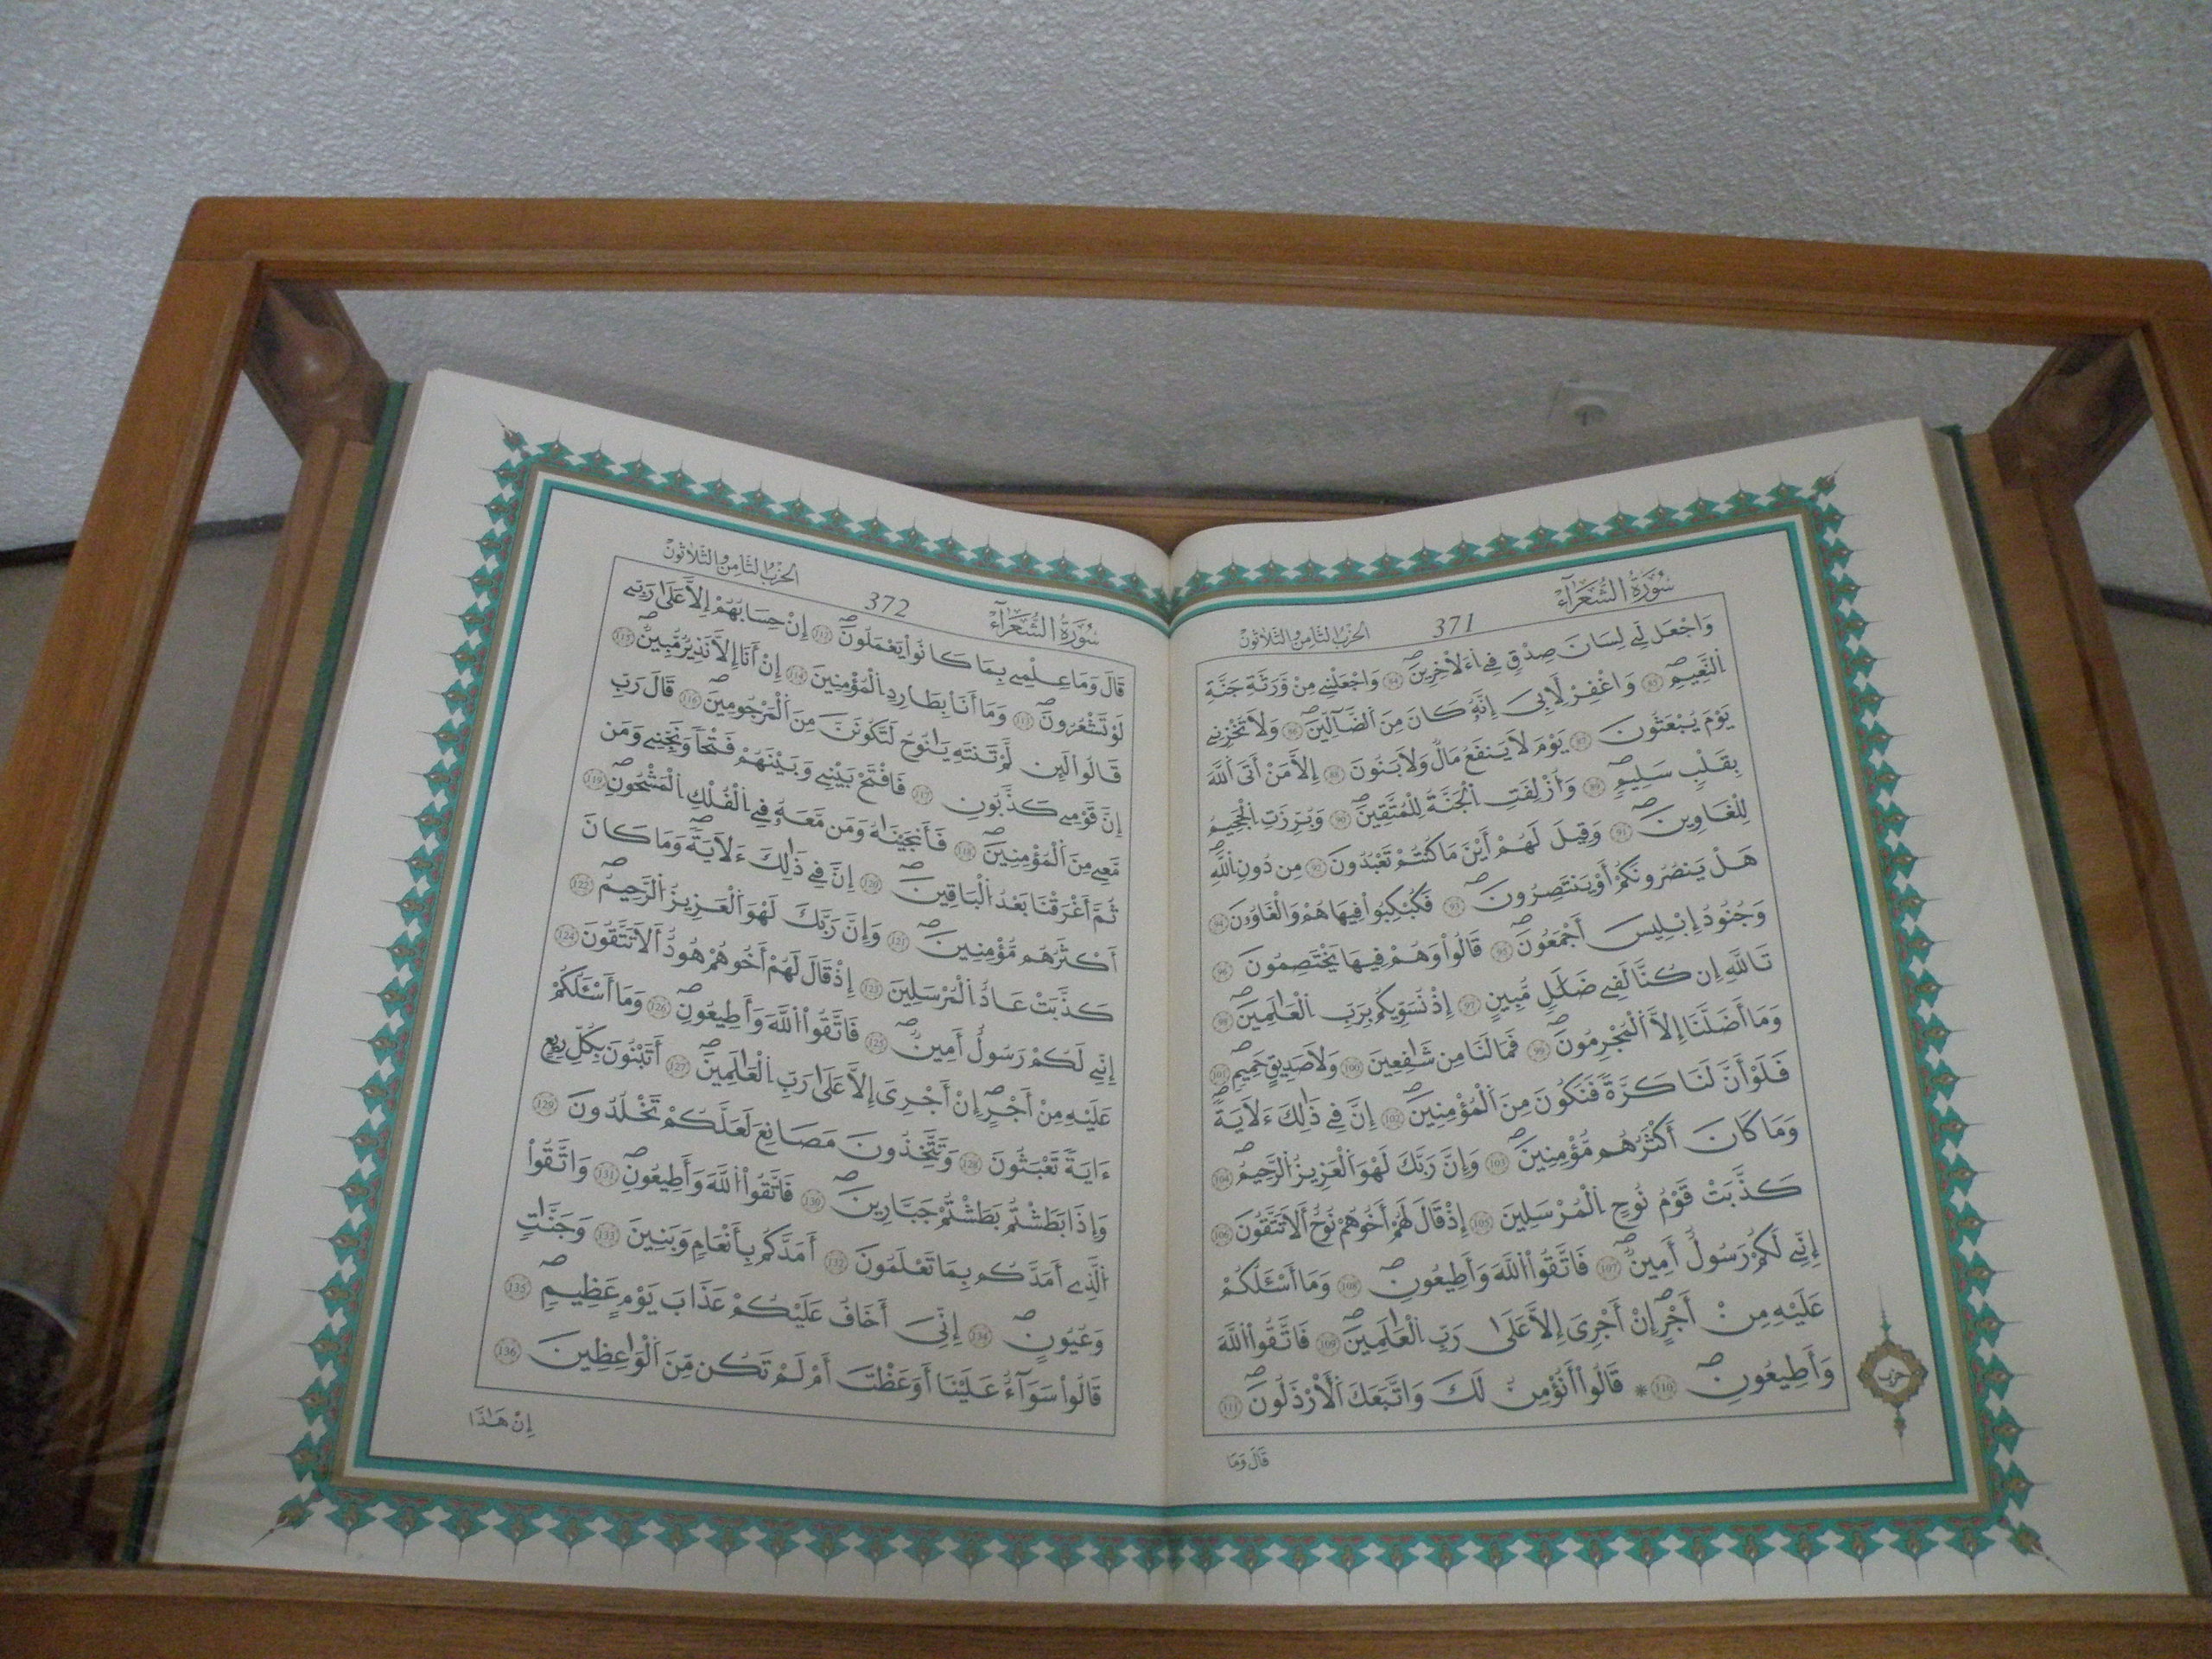 سُورَةُ الشُّعَرَآءِ 371 الحِزْبُ الثَّامِنُ وَالثَّلاَثُونْ
وَاجْعَل لِّے لِسَانَ صِدْقٍ فِے اِ۬ءَلاْخِرِينَ 84 وَاجْعَلْنِے مِنْ وَّرَثَةِ جَنَّةِ
اِ۬لنَّعِيمِ 85 وَاغْفِرْ لَأِبِيَ إِنَّهُۥ كَانَ مِنَ اَ۬لضَّآلِّينَ 86 وَلاَ تُخْزِنِے
يَوْمَ يُبْعَثُونَ 87 يَوْمَ لاَ يَنفَعُ مَالٌ وَلاَ بَنُونَ 88 إِلاَّ مَنْ أَتَى اَ۬للَّهَ
بِقَلْبٍ سَلِيمٍ 89 وَأُزْلِفَتِ اِ۬لْجَنَّةُ لِلْمُتَّقِينَ 90 وَبُرِّزَتِ اِ۬لْجَحِيمُ
لِلْغَاوِينَ 91 وَقِيلَ لَهُمْ أَيْنَ مَا كُنتُمْ تَعْبُدُونَ 92 مِن دُونِ اِ۬للَّهِ
هَلْ يَنصُرُونَكُمْ أَوْ يَنتَصِرُونَ 93 فَكُبْكِبُواْ فِيهَا هُمْ وَالْغَاوُۥنَ 94
وَجُنُودُ إِبْلِيسَ أَجْمَعُونَ 95 قَالُواْ وَهُمْ فِيهَا يَخْتَصِمُونَ 96
تَاللَّهِ إِن كُنَّا لَفِے ضَلَٰلٍ مُّبِينٍ 97 إِذْ نُسَوِّيكُم بِرَبِّ اِ۬لْعَٰلَمِينَ 98
وَمَا أَضَلَّنَا إِلاَّ اَ۬لْمُجْرِمُونَ 99 فَمَا لَنَا مِن شَٰفِعِينَ 100 وَلاَ صَدِيقٍ حَمِيمٍ 101
فَلَوْ أَنَّ لَنَا كَرَّةً فَنَكُونَ مِنَ اَ۬لْمُؤْمِنِينَ 102 إِنَّ فِے ذَٰلِكَ ءَلاَيَةً
وَمَا كَانَ أَكْثَرُهُم مُّؤْمِنِينَ 103 وَإِنَّ رَبَّكَ لَهُوَ اَ۬لْعَزِيزُ اُ۬لرَّحِيمُ 104
كَذَّبَتْ قَوْمُ نُوحٍ اِ۬لْمُرْسَلِينَ 105 إِذْ قَالَ لَهُمْ أَخُوهُمْ نُوحٌ أَلاَ تَتَّقُونَ 106
إِنِّے لَكُمْ رَسُولٌ أَمِينٌ 107 فَاتَّقُواْ اُ۬للَّهَ وَأَطِيعُونِ 108 وَمَا أَسْـَٔلُكُمْ
عَلَيْهِ مِنْ أَجْرٍ إِنْ أَجْرِيَ إِلاَّ عَلَىٰ رَبِّ اِ۬لْعَٰلَمِينَ 109 فَاتَّقُواْ اُ۬للَّهَ
وَأَطِيعُونِ 110 * قَالُواْ أَنُؤْمِنُ لَكَ وَاتَّبَعَكَ اَ۬لَأرْذَلُونَ 111
حزب
قَالَ وَمَا
سُورَةُ الشُّعَرَآءِ 372 الحِزْبُ الثَّامِنُ وَالثَّلاَثُونْ
قَالَ وَمَا عِلْمِے بِمَا كَانُواْ يَعْمَلُونَ 112 إِنْ حِسَابُهُمْ إِلاَّ عَلَىٰ رَبِّے
لَوْ تَشْعُرُونَ 113 وَمَا أَنَا بِطَارِدِ اِ۬لْمُؤْمِنِينَ 114 إِنْ أَنَا إِلاَّ نَذِيرٌ مُّبِينٌ 115
قَالُواْ لَئِن لَّمْ تَنتَهِ يَٰنُوحُ لَتَكُونَنَّ مِنَ اَ۬لْمَرْجُومِينَ 116 قَالَ رَبِّ
إِنَّ قَوْمِے كَذَّبُونِ 117 فَافْتَحْ بَيْنِے وَبَيْنَهُمْ فَتْحاً وَنَجِّنِے وَمَن
مَّعِے مِنَ اَ۬لْمُؤْمِنِينَ 118 فَأَنجَيْنَٰهُ وَمَن مَّعَهُۥ فِے اِ۬لْفُلْكِ اِ۬لْمَشْحُونِ 119
ثُمَّ أَغْرَقْنَا بَعْدُ اُ۬لْبَاقِينَ 120 إِنَّ فِے ذَٰلِكَ ءَلاَيَةً وَمَا كَانَ
أَكْثَرُهُم مُّؤْمِنِينَ 121 وَإِنَّ رَبَّكَ لَهُوَ اَ۬لْعَزِيزُ اُ۬لرَّحِيمُ 122
كَذَّبَتْ عَادٌ اُ۬لْمُرْسَلِينَ 123 إِذْ قَالَ لَهُمْ أَخُوهُمْ هُودٌ أَلاَ تَتَّقُونَ 124
إِنِّے لَكُمْ رَسُولٌ أَمِينٌ 125 فَاتَّقُواْ اُ۬للَّهَ وَأَطِيعُونِ 126 وَمَا أَسْـَٔلُكُمْ
عَلَيْهِ مِنْ أَجْرٍ إِنْ أَجْرِيَ إِلاَّ عَلَىٰ رَبِّ اِ۬لْعَٰلَمِينَ 127 أَتَبْنُونَ بِكُلِّ رِيعٍ
ءَايَةً تَعْبَثُونَ 128 وَتَتَّخِذُونَ مَصَانِعَ لَعَلَّكُمْ تَخْلُدُونَ 129
وَإِذَا بَطَشْتُم بَطَشْتُمْ جَبَّارِينَ 130 فَاتَّقُواْ اُ۬للَّهَ وَأَطِيعُونِ 131 وَاتَّقُواْ
اُ۬لَّذِے أَمَدَّكُم بِمَا تَعْلَمُونَ 132 أَمَدَّكُم بِأَنْعَامٍ وَبَنِينَ 133 وَجَنَّٰتٍ
وَعُيُونٍ 134 إِنِّيَ أَخَافُ عَلَيْكُمْ عَذَابَ يَوْمٍ عَظِيمٍ 135
قَالُواْ سَوَآءٌ عَلَيْنَا أَوَعَظْتَ أَمْ لَمْ تَكُن مِّنَ اَ۬لْوَٰعِظِينَ 136
إِنْ هَٰذَا